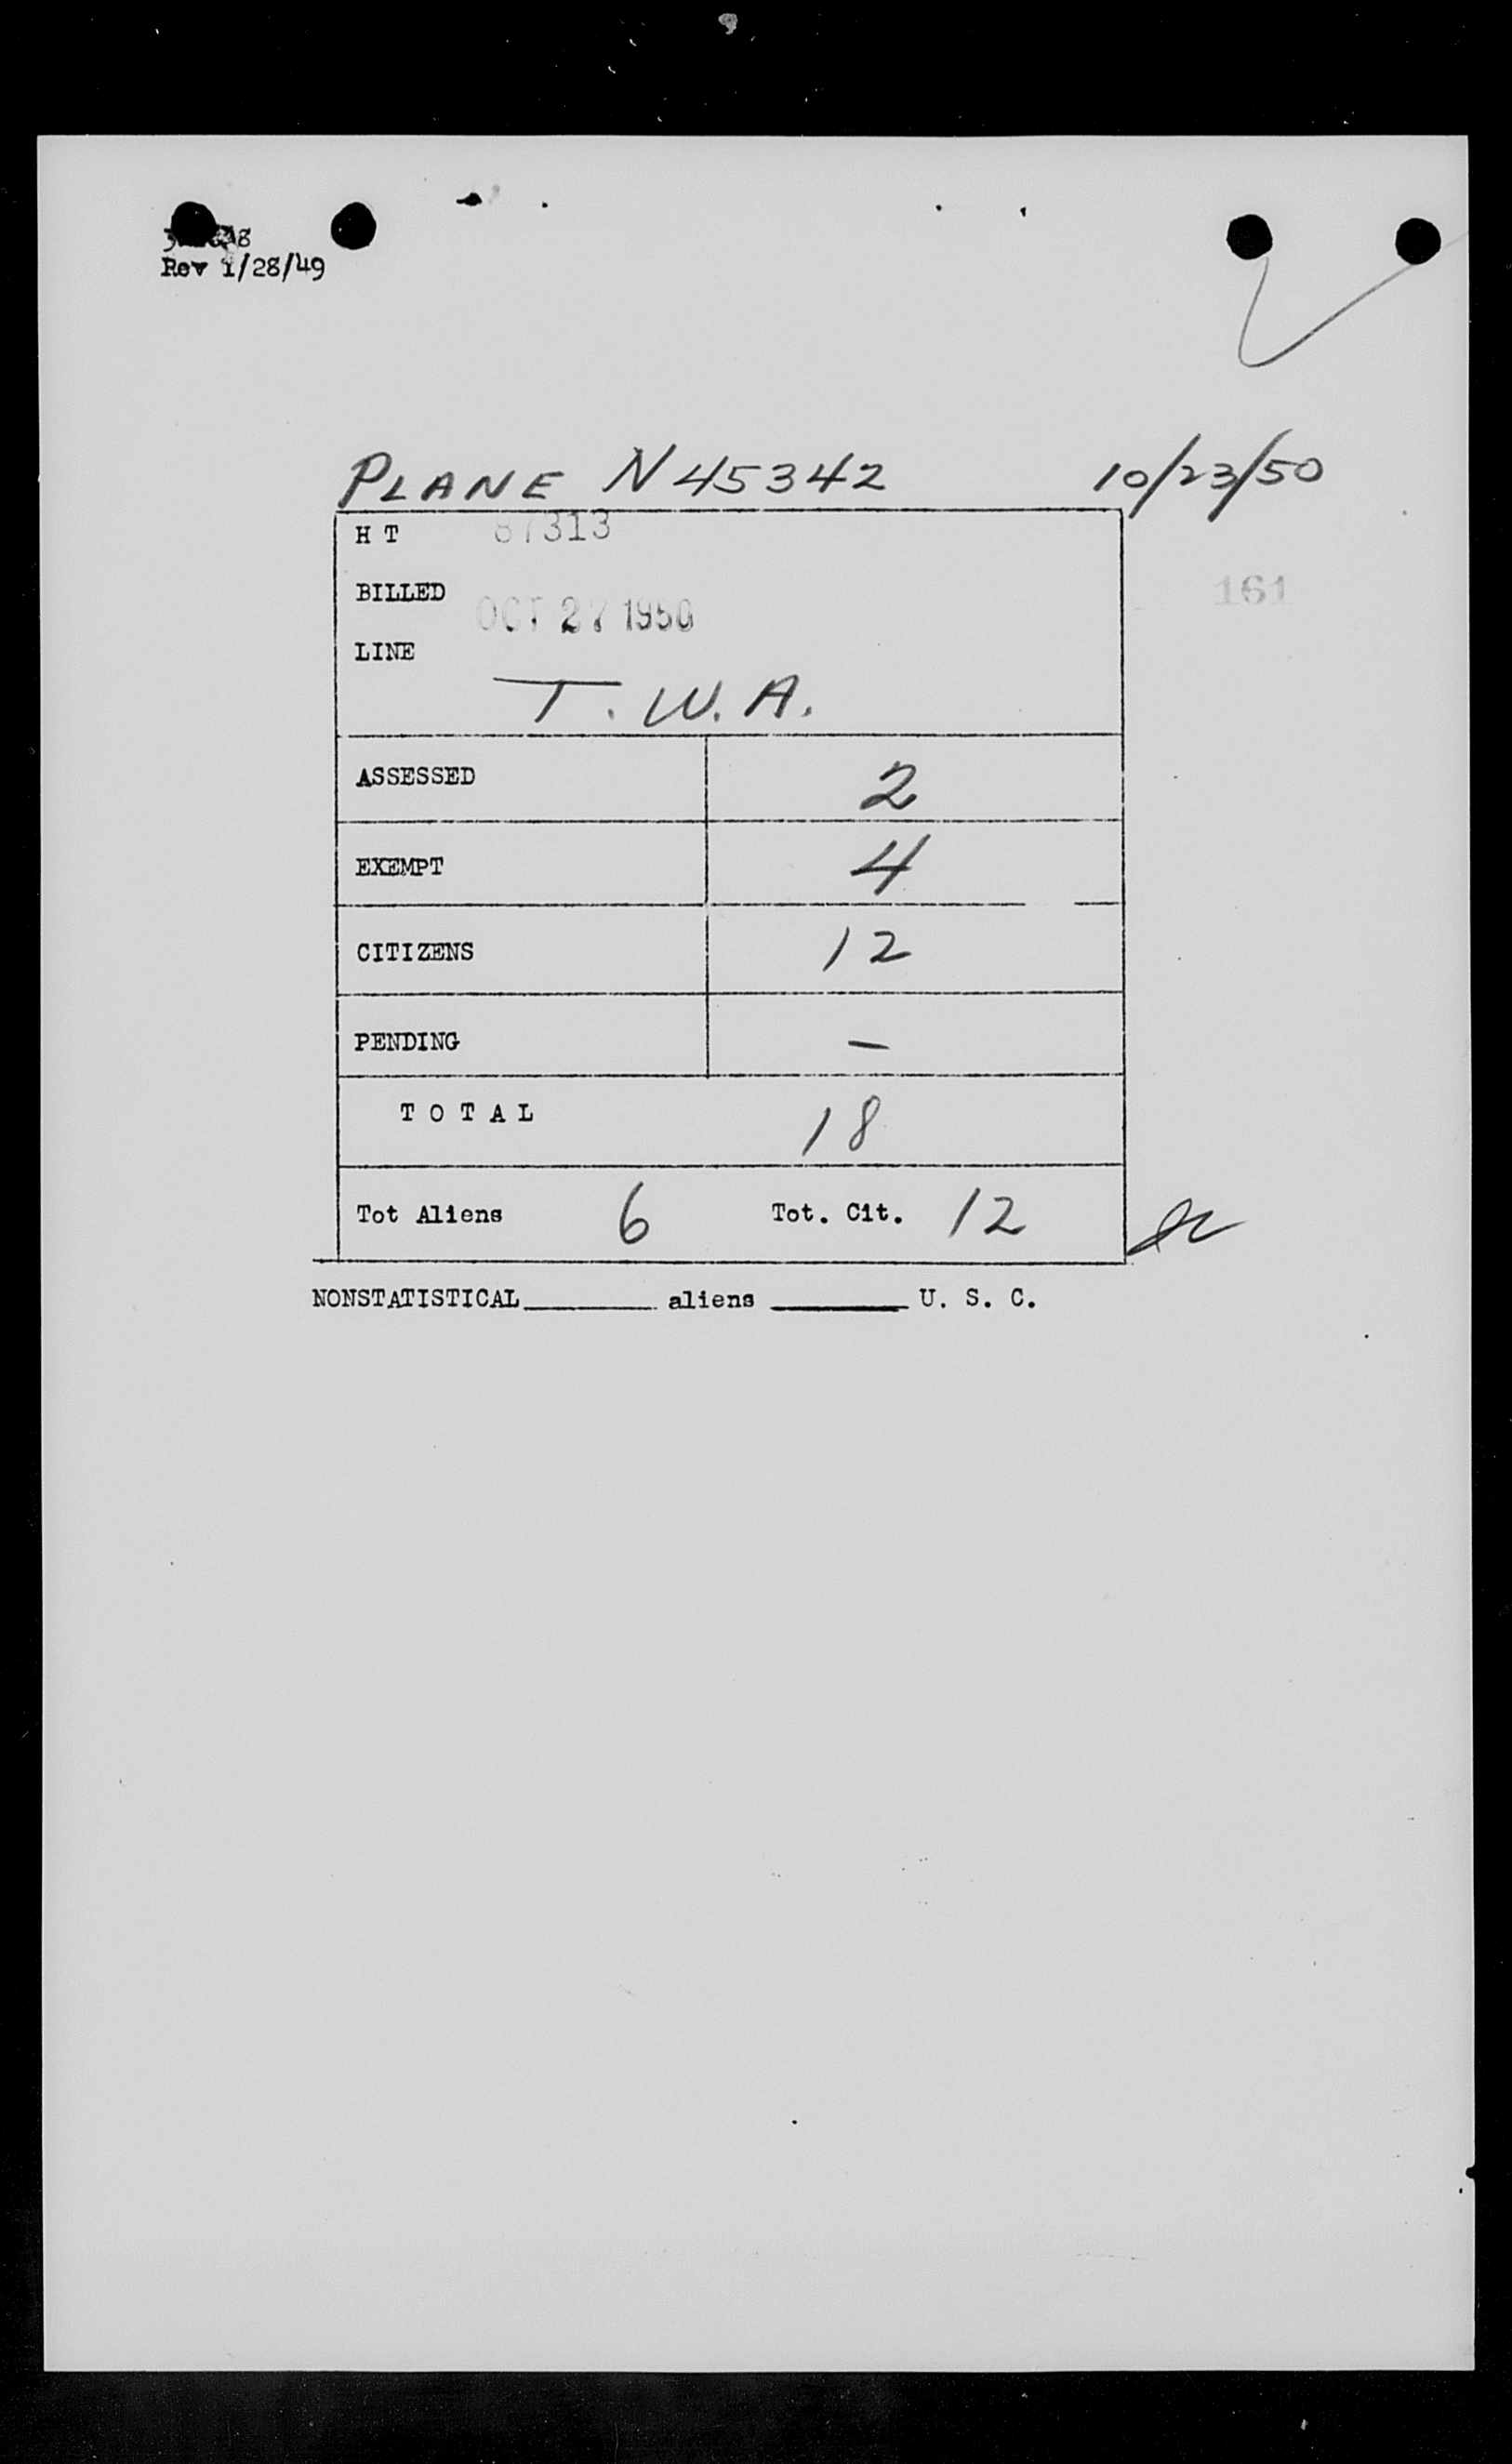 Rev 1/28/49
PLANE N45342 10/23/50
H T 87313
BILLED OCT 27 1950
161
LINE
T. W. A.
ASSESSED 2
EXEMPT 4
CITIZENS 12
PENDING –
TOTAL 18
Tot Aliens 6 Tot. Cit. 12
NONSTATISTICAL______ aliens ______ U. S. C.